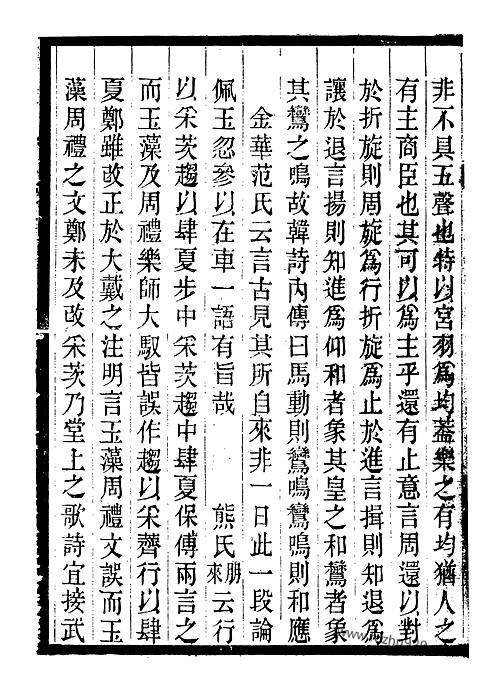 非不具五聲也特以宮羽爲均葢樂之有均猶人之
有主商臣也其可以爲主乎還有止意言周還以對
於折旋則周旋爲行折旋爲止於進言揖則知退爲
讓於退言揚則知進爲仰和者象其皇之和鸞者象
其鸞之鳴故韓詩內傳曰馬動則鸞鳴鸞鳴則和應
金華范氏云言古見其所自來非一日此一段論
佩玉忽參以在車一語有旨哉　熊氏朋來云行
以采茨趨以肆夏步中采茨趨中肆夏保傅兩言之
而玉藻及周禮樂師大馭皆誤作趨以采薺行以肆
夏鄭雖改正於大戴之注明言玉藻周禮文誤而玉
藻周禮之文鄭未及改采茨乃堂上之歌詩宜接武